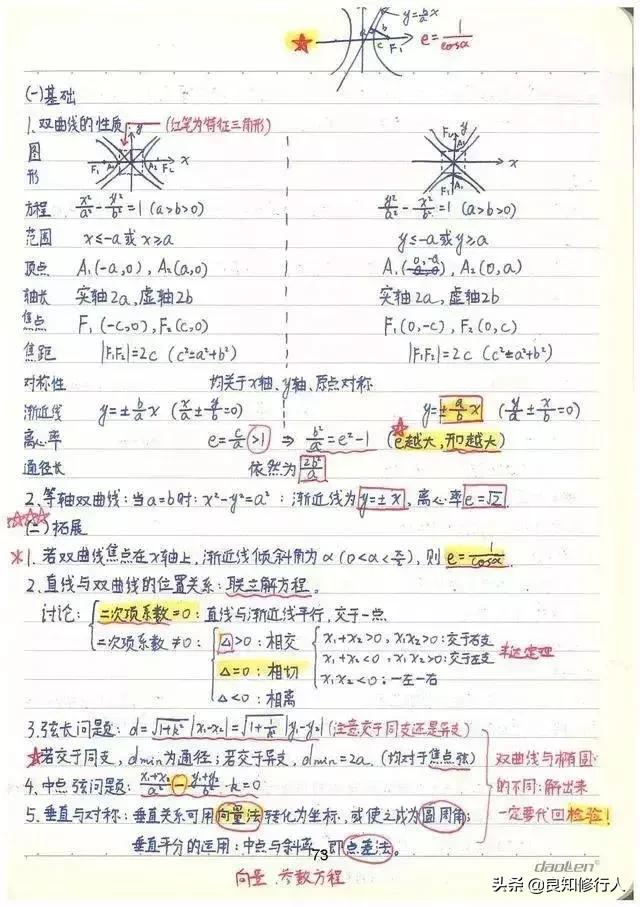 y=b/a x
a b
c F₁ e=1/cosα
(一)基础
1.双曲线的性质 (红笔为特征三角形)
图形
y
F₁ A₁ A₂ F₂ x
F₂ y
A₁ x
F₁
方程 x²/a²-y²/b²=1 (a>b>0) y²/a²-x²/b²=1 (a>b>0)
范围 x≤-a或x≥a y≤-a或y≥a
顶点 A₁(-a,0),A₂(a,0) A₁(0,-a),A₂(0,a)
轴长 实轴2a,虚轴2b 实轴2a,虚轴2b
焦点 F₁(-c,0),F₂(c,0) F₁(0,-c),F₂(0,c)
焦距 |F₁F₂|=2c (c²=a²+b²) |F₁F₂|=2c (c²=a²+b²)
对称性 均关于x轴、y轴、原点对称
渐近线 y=±b/a x (x/a±y/b=0) y=±a/b x (y/a±x/b=0)
离心率 e=c/a>1 ⇒ b²/a²=e²-1 (e越大,开口越大)
通径长 依然为2b²/a
2.等轴双曲线:当a=b时:x²-y²=a²:渐近线为y=±x,离心率e=√2.
(二)拓展
1.若双曲线焦点在x轴上,渐近线倾斜角为α(0<α<π/2),则e=1/cosα
2.直线与双曲线的位置关系:联立解方程。
讨论:二次项系数=0:直线与渐近线平行,交于一点.
二次项系数≠0: △>0:相交 x₁+x₂>0,x₁x₂>0:交于右支
x₁+x₂<0,x₁x₂>0:交于左支 韦达定理
△=0:相切 x₁x₂<0:一左一右
△<0:相离
3.弦长问题:d=√1+k²|x₁-x₂|=√1+1/k²|y₁-y₂|(注意交于同支还是异支)
若交于同支,dmin为通径;若交于异支,dmin=2a.(均对于焦点弦) 双曲线与椭圆
4.中点弦问题:x₁+x₂/a²-y₁+y₂/b²·k=0 的不同:解出来
5.垂直与对称:垂直关系可用向量法转化为坐标,或使之成为圆周角; 一定要代回检验!
垂直平分的运用:中点与斜率,即点差法。
73
向量.参数方程
daolen®
头条@良知修行人